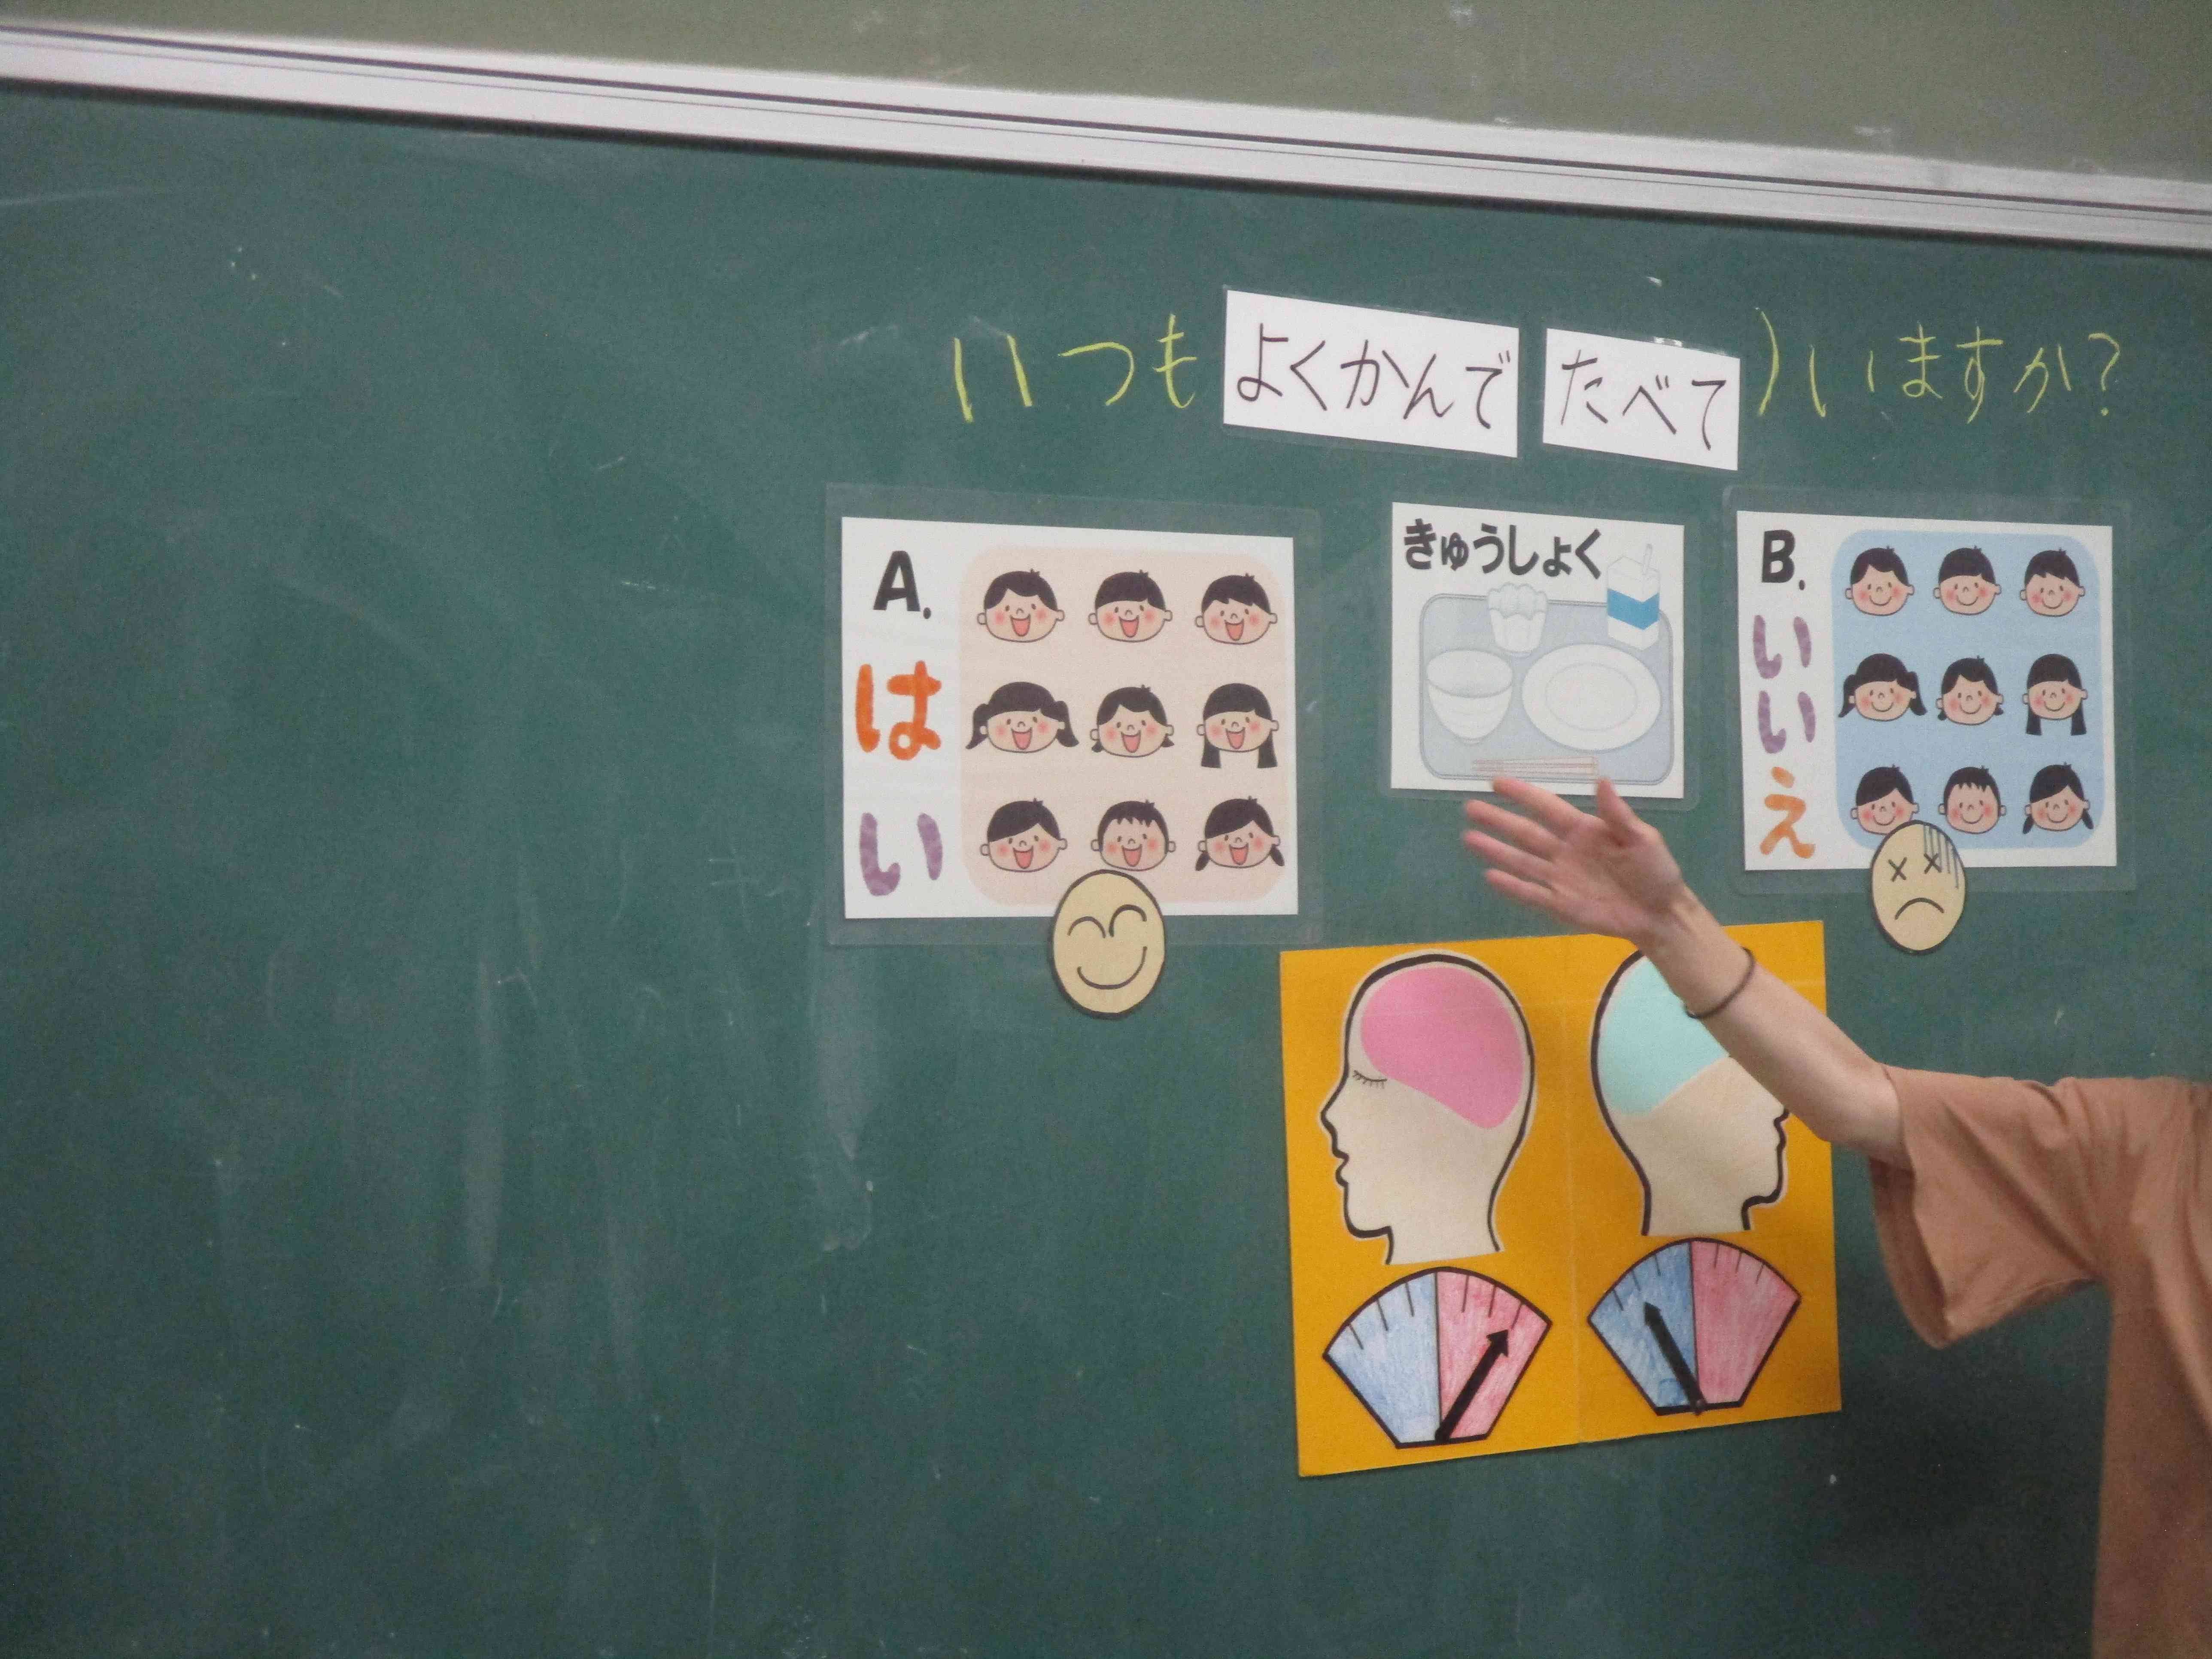 いつも よくかんで たべて いますか?
A.
はい
きゅうしょく
B.
いいえ